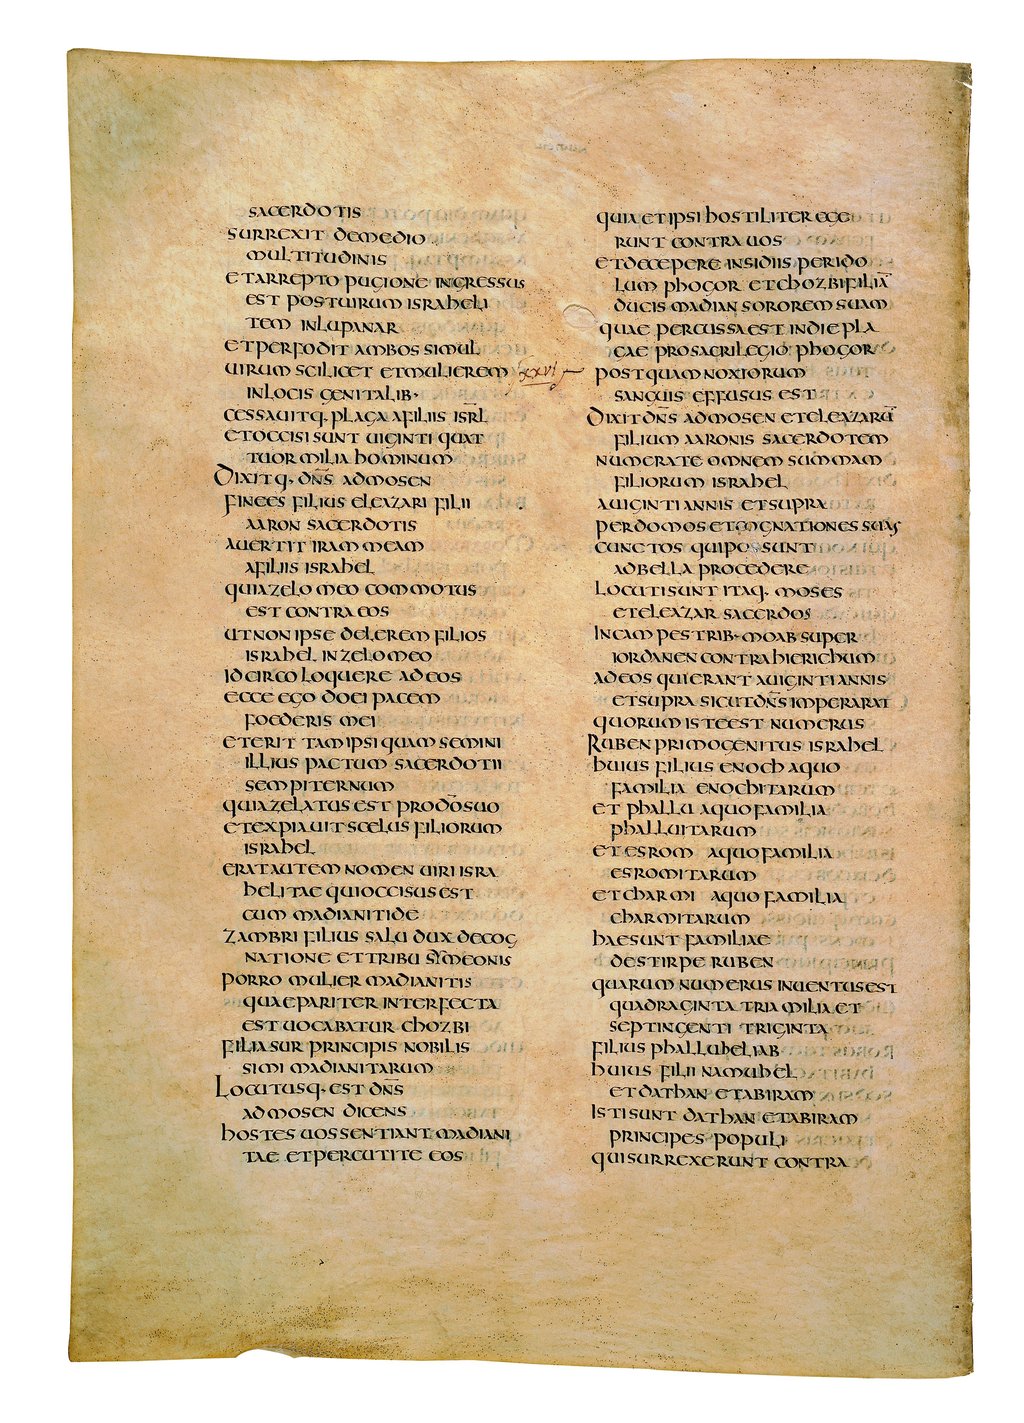 SACERDOTIS
SURREXIT DEMEDIO
MULTITUDINIS
ETARREPTO PUGIONE INGRESSUS
EST POSTUIRUM ISRAHELI
TEM INLUPANAR
ETPERFODIT AMBOS SIMUL
UIRUM SCILICET ETMULIEREM
INLOCIS GENITALIB·
CESSAUITQ· PLAGA AFILIIS ISRL̄
ETOCCISI SUNT UIGINTI QUAT
TUOR MILIA HOMINUM
DIXITQ· DN̄S ADMOSEN
FINEES FILIUS ELEAZARI FILII
AARON SACERDOTIS
AUERTIT IRAM MEAM
AFILIIS ISRAHEL
QUIAZELO MEO COMMOTUS
EST CONTRA EOS
UTNON IPSE DELEREM FILIOS
ISRAHEL INZELO MEO
IDCIRCO LOQUERE AD EOS
ECCE EGO DO EI PACEM
FOEDERIS MEI
ETERIT TAM IPSI QUAM SEMINI
ILLIUS PACTUM SACERDOTII
SEMPITERNUM
QUIAZELATUS EST PRODŌSUO
ETEXPIAUIT SCELUS FILIORUM
ISRAHEL
ERATAUTEM NOMEN UIRI ISRA
HELITAE QUIOCCISUS EST
CUM MADIANITIDE
ZAMBRI FILIUS SALU DUX DECOG
NATIONE ET TRIBU SYMEONIS
PORRO MULIER MADIANITIS
QUAEPARITER INTERFECTA
EST UOCABATUR CHOZBI
FILIASUR PRINCIPIS NOBILIS
SIMI MADIANITARUM
LOCUTUSQ· EST DN̄S
ADMOSEN DICENS
HOSTES UOS SENTIANT MADIANI
TAE ETPERCUTITE EOS
QUIA ET IPSI HOSTILITER EGE
RUNT CONTRA UOS
ETDECEPERE INSIDIIS PERIDO
LUM PHOGOR ETCHOZBI FILIĀ
DUCIS MADIAN SOROREM SUAM
QUAE PERCUSSA EST INDIE PLA
GAE PROSACRILEGIO PHOGOR
XXVI POSTQUAM NOXIORUM
SANGUIS EFFUSUS EST
DIXIT DN̄S ADMOSEN ETELEAZARŪ
FILIUM AARONIS SACERDOTEM
NUMERATE OMNEM SUMMAM
FILIORUM ISRAHEL
AUIGINTI ANNIS ETSUPRA
PERDOMOS ETCOGNATIONES SUAS
CUNCTOS QUIPOSSUNT
ADBELLA PROCEDERE
LOCUTISUNT ITAQ· MOSES
ETELEAZAR SACERDOS
INCAMPESTRIB· MOAB SUPER
IORDANEN CONTRA HIERICHUM
ADEOS QUIERANT AUIGINTI ANNIS
ETSUPRA SICUT DN̄S IMPERARAT
QUORUM ISTE EST NUMERUS
RUBEN PRIMOGENITUS ISRAHEL
HUIUS FILIUS ENOCH AQUO
FAMILIA ENOCHITARUM
ET PHALLU AQUO FAMILIA
PHALLUITARUM
ET ESROM AQUO FAMILIA
ESROMITARUM
ET CHARMI AQUO FAMILIA
CHARMITARUM
HAESUNT FAMILIAE
DESTIRPE RUBEN
QUARUM NUMERUS INUENTUS EST
QUADRAGINTA TRIA MILIA ET
SEPTINGENTI TRIGINTA
FILIUS PHALLUHELIAB
HUIUS FILII NAMUHEL
ETDATHAN ETABIRAM
ISTISUNT DATHAN ETABIRAM
PRINCIPES POPULI
QUISURREXERUNT CONTRA